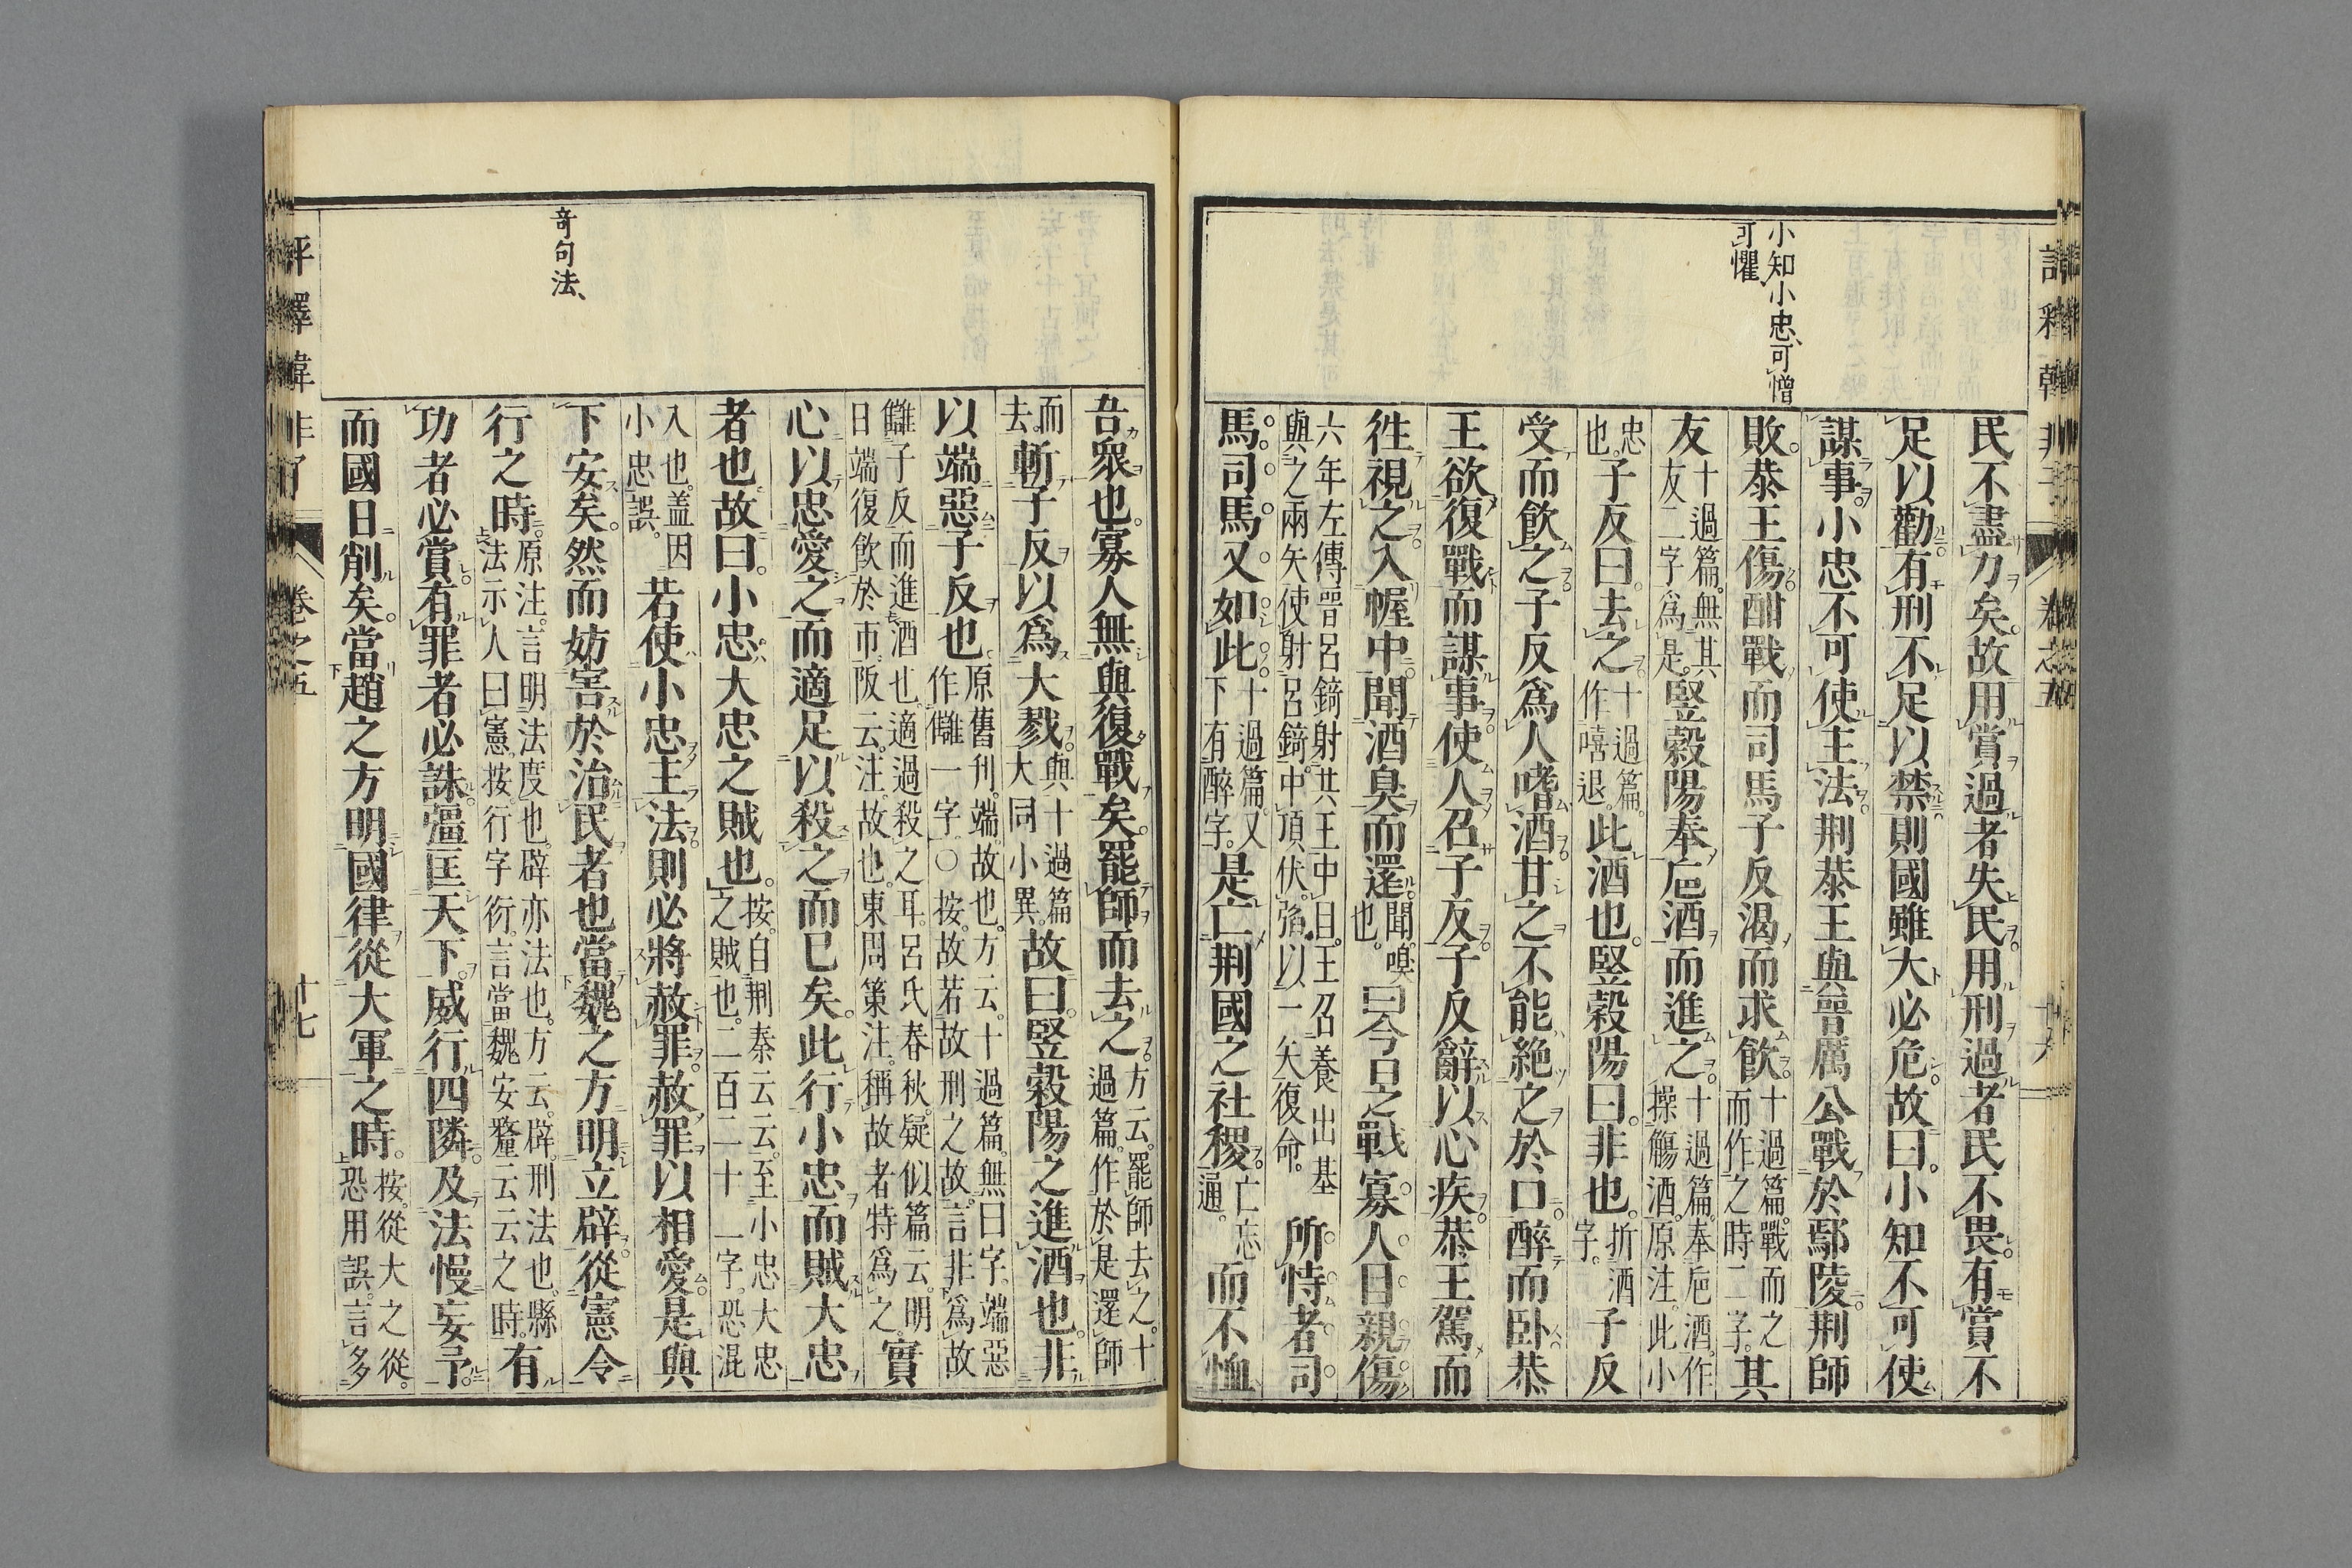 小知小忠、可憎
可懼、
民不盡力矣。故用賞過者失民。用刑過者民不畏。有賞不
足以勸。有刑不足以禁。則國雖大必危。故曰。小知不可使
謀事。小忠不可使主法。荆恭王與晉厲公戰於鄢陵。荆師
敗。恭王傷。酣戰而司馬子反渴而求飮。十過篇。戰而之而作之時二字。其
友十過篇。無其友二字爲是。豎穀陽奉巵酒而進之。十過篇。奉巵酒。作操觴酒。原注。此小
忠也。子反曰。去之。十過篇。作嘻退。此酒也。豎穀陽曰。非也。折酒字。子反
受而飮之。子反爲人嗜酒。甘之不能絶之於口。醉而臥。恭
王欲復戰而謀事。使人召子反。子反辭以心疾。恭王駕而
徃視之。入幄中。聞酒臭而還。聞。嗅也。曰今日之戰寡人目親傷
六年左傳。晉呂錡射共王中目。王召養由基與之兩矢使射呂錡。中項伏弢。以一矢復命。所恃者。司
馬。司馬又如此。十過篇。又下有醉字。是亡荆國之社稷。亡忘通。而不恤
評釋韓非子 卷之五 十六
吾衆也。寡人無與復戰矣。罷師而去之。方云。罷師去之。十過篇。作於是還師
而去。斬子反以爲大戮。與十過篇大同小異。故曰。豎穀陽之進酒也。非
以端惡子反也。原舊刊。端。故也。方云。十過篇。無曰字。端惡作讎一字。○按。故若故刑之故。言非爲故
讎子反而進酒也。適過殺之耳。呂氏春秋。疑似篇云。明日端復飮於市。阪云。注。故也。東周策注。稱故者特爲之。實
心以忠愛之。而適足以殺之而已矣。此行小忠而賊大忠
者也。故曰。小忠。大忠之賊也。按。自荆恭云云。至小忠大忠之賊也。二百二十一字。恐混
入也。蓋因小忠誤。若使小忠主法。則必將赦罪。赦罪以相愛。是與
下安矣。然而妨害於治民者也。當魏之方明立辟。從憲令
行之時。原注。言明法度也。辟亦法也。方云。辟。刑法也。縣法示人曰憲。按。行字衍。言當魏安釐云云之時。有
功者必賞。有罪者必誅。彊匡天下。威行四隣。及法慢妄予。
而國日削矣。當趙之方明國律。從大軍之時。按。從大之從。恐用誤。言多
奇句法、
評釋韓非子 卷之五 十七